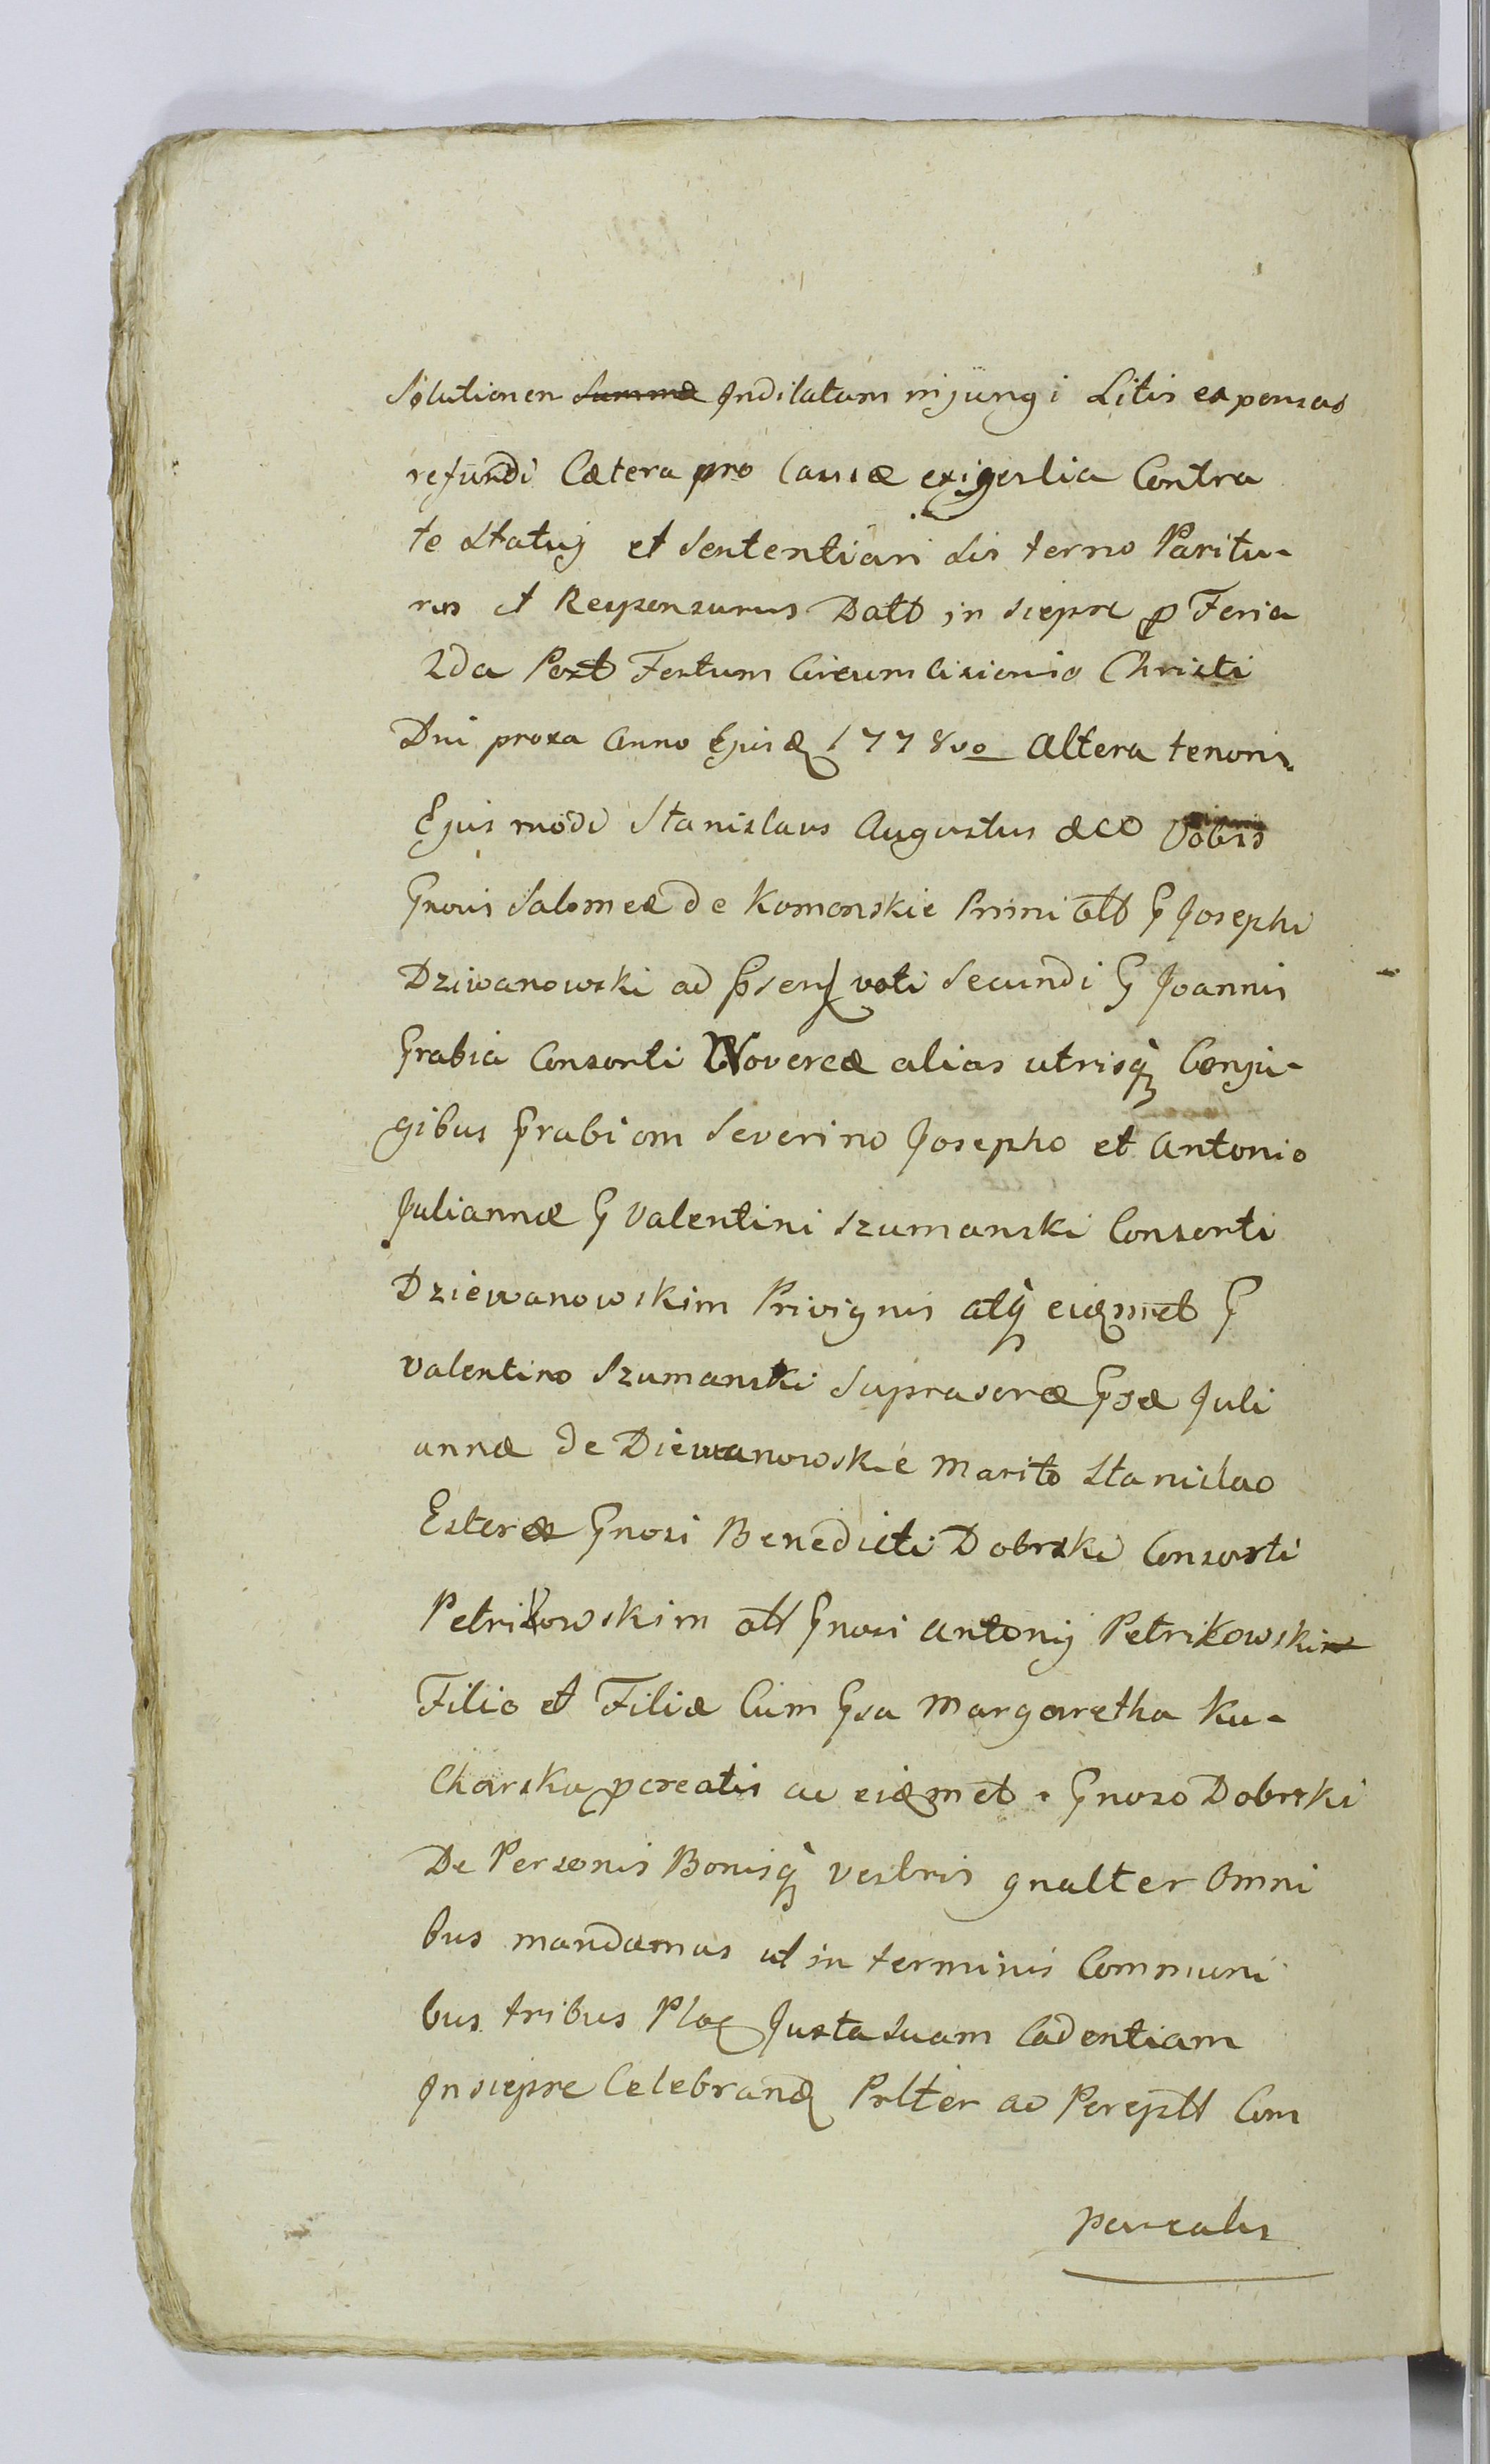 Solutionem ~~Summæ~~ Indilatam injungi Litis expensas
refundi Cætera pro Causæ exigentia Contra
te Statuj et Sententiari Sis terno Paritu-
rus et Responsurus Datt in Siepre p Feria
2da Post Festum Circumcisionis Christi
Dni proxa Anno Ejusd 1778vo Altera tenoris
Ejusmodi Stanislaus Augustus &c Vobis
Gnosis Salomeæ de Komorskie Primi olt G Josephi
Dziwanowski ad psens voti Secundi G Joannis
Grabia Consorti Novercæ alias utrisq Conju-
gibus Grabiom Severino Josepho et Antonio
Juliannæ G Valentini Szumanski Consorti
Dziewanowskim Privignis atq eidmet G
Valentino Szumanski Suprascræ Gsæ Juli
annæ de Diewanowskie Marito Stanislao
Esteræ Gnosi Benedicti Dobrski Consorti
Petrikowskim olt Gnosi Antonij Petrikowski
Filio et Filiæ Cum Gsa Margaretha Ku-
Charska pcreatis ac eidmet Gnoso Dobrski
De Personis Bonisq Vestris gnalter Omni
bus mandamus ut in terminis Communi
bus tribus Plog Juxta Suam Cadentiam
In Siepre Celebrand Prlter ac Pereptt Com
pareatis